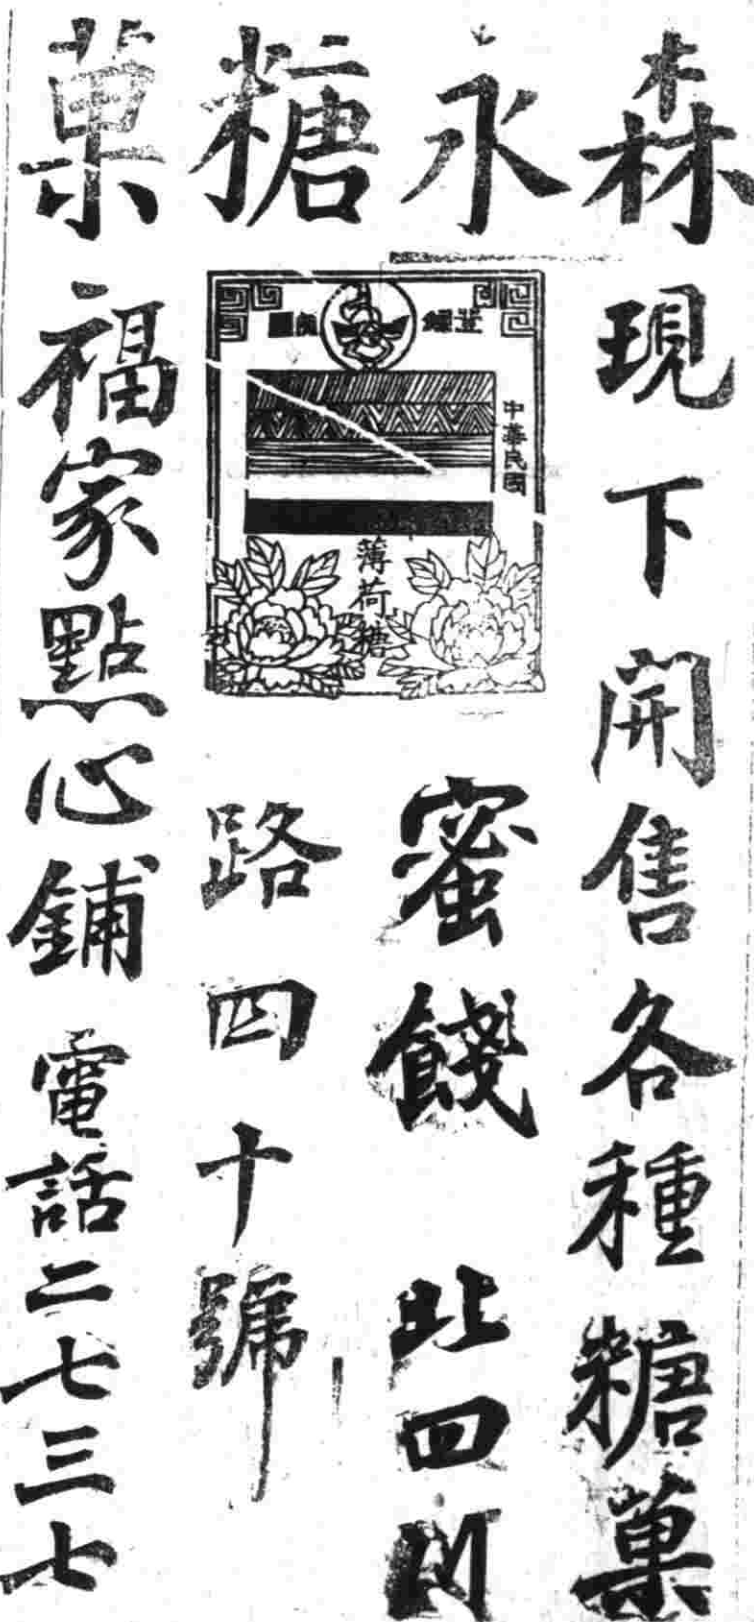 森永糖菓
現下開售各種糖菓
蜜餞 北四川
路四十號
福家點心舖 電話二七三七
中華民國
薄荷糖